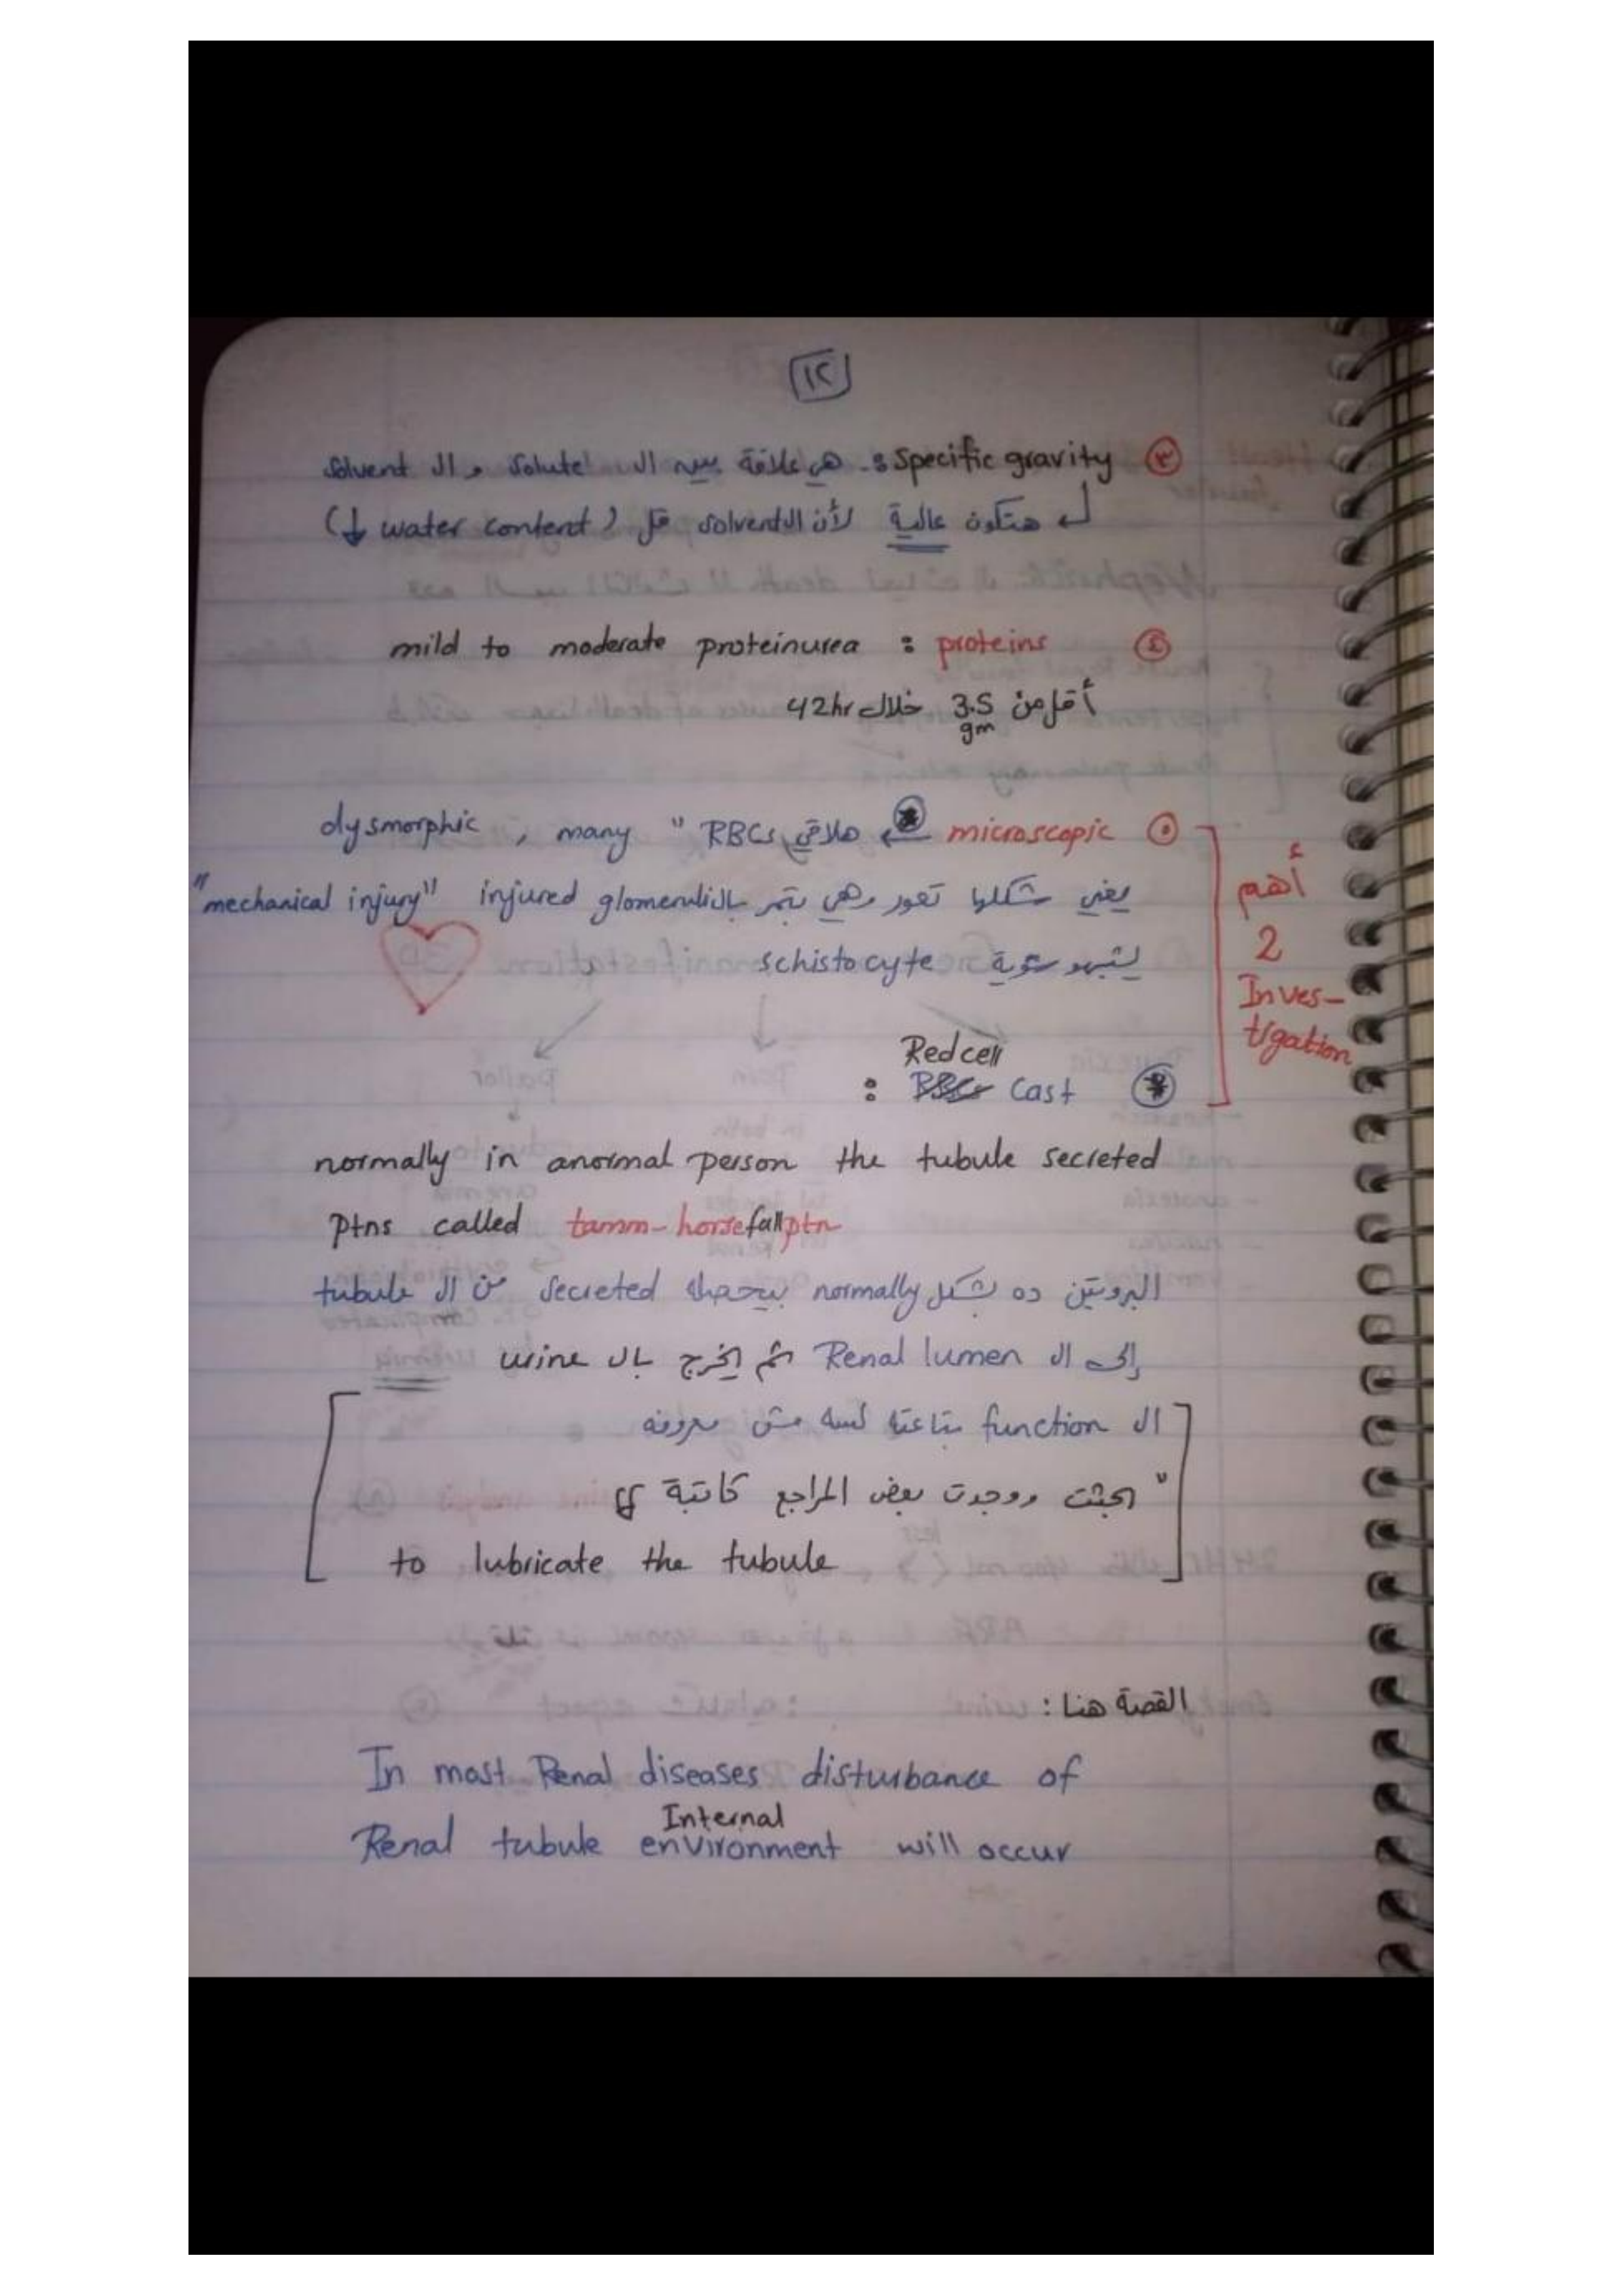 ١٢
٣ Specific gravity : هي علاقة بين ال solute و ال solvent
هتكون عالية لأن ال solvent قل (↓ water content)
٤ proteins : mild to moderate proteinurea
أقل من 3.5 gm خلال 42hr
٥ microscopic هلاقي RBCs " many , dysmorphic
يعني شكلها تعور وهي بتمر بال injured glomeruli "mechanical injury"
يشبهو شوية schistocyte
أهم
2
Inves-
tigation
Red cell
Cast :
normally in anormal person the tubule secreted
ptns called tamm-horsefall ptn
البروتين ده بشكل normally بيحصله secreted من ال tubule
إلى ال Renal lumen ثم يخرج بال urine
ال function بتاعته لسه مش معروفه
" بحثت ووجدت بعض المراجع كاتبة
to lubricate the tubule
القصة هنا :
In most Renal diseases disturbance of
Internal
Renal tubule environment will occur